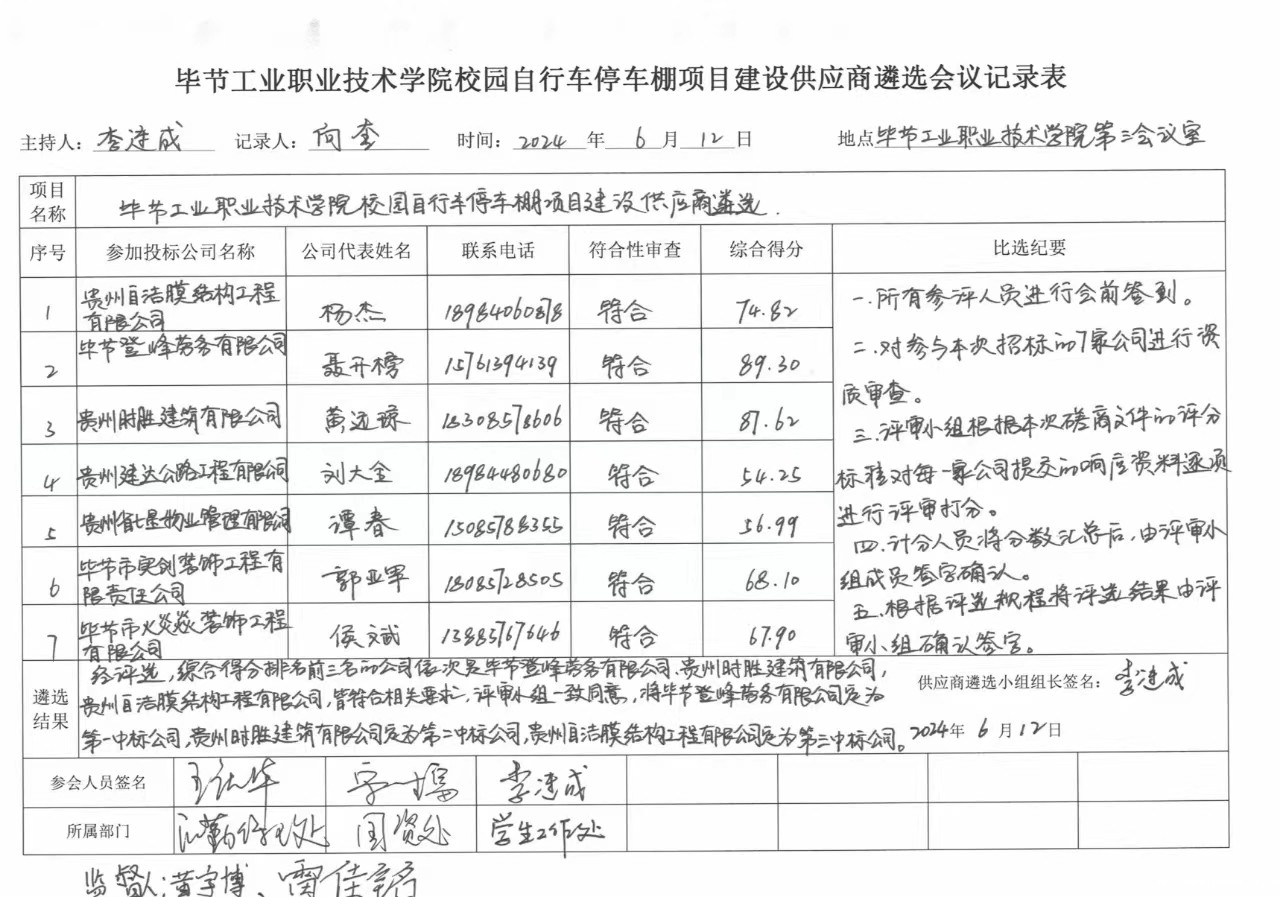 毕节工业职业技术学院校园自行车停车棚项目建设供应商遴选会议记录表
主持人：李连成 记录人：向奎 时间：2024 年 6 月 12 日 地点 毕节工业职业技术学院第三会议室
项目名称 毕节工业职业技术学院校园自行车停车棚项目建设供应商遴选.
序号 参加投标公司名称 公司代表姓名 联系电话 符合性审查 综合得分 比选纪要
1 贵州自洁膜结构工程有限公司 杨杰 18984060878 符合 74.82
2 毕节登峰劳务有限公司 聂开榜 15761394139 符合 89.30
3 贵州时胜建筑有限公司 黄远琼 18308578606 符合 87.62
4 贵州建达公路工程有限公司 刘大全 18984480680 符合 54.25
5 贵州省七星物业管理有限公司 谭春 15085788355 符合 56.99
6 毕节市奥创装饰工程有限责任公司 郭亚军 18085728505 符合 68.10
7 毕节市火焱焱装饰工程有限公司 侯斌 13885767646 符合 67.90
一.所有参评人员进行会前签到。
二.对参与本次招标的7家公司进行资
质审查。
三.评审小组根据本次磋商文件的评分
标准对每一家公司提交的响应资料逐项
进行评审打分。
四.计分人员将分数汇总后,由评审小
组成员签字确认。
五.根据评选规程将评选结果由评
审小组确认签字。
遴选结果
经评选，综合得分排名前三名的公司依次是毕节登峰劳务有限公司、贵州时胜建筑有限公司，
贵州自洁膜结构工程有限公司，皆符合相关要求，评审小组一致同意，将毕节登峰劳务有限公司定为
第一中标公司，贵州时胜建筑有限公司定为第二中标公司，贵州自洁膜结构工程有限公司定为第三中标公司。
供应商遴选小组组长签名： 李连成
2024年 6 月 12 日
参会人员签名 李连成
所属部门 后勤管理处 国资处 学生工作处
监督人：黄宇博、雷佳